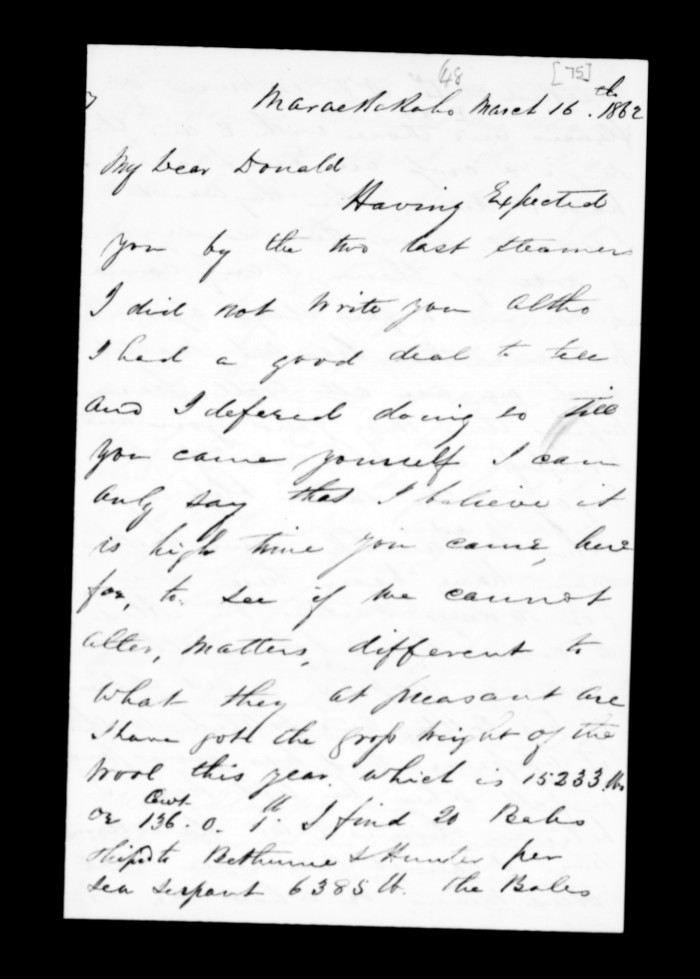 (48 [75]
Maraekakaho March 16.th 1862
My Dear Donald
Having Expected
you by the two last steamers
I did not write you altho
I had a good deal to tell
and I defered doing so till
you came yourself I can
only say that I believe it
is high time you came, here
for, to see if we cannot
alter, matters, different to
what they at preasant are
I have gott the gross weight of the
wool this year. which is 15233 lbs
or 136 Cwt. 0. 1 lb. I find 20 Bales
shipd to Bethune & Hunter per
sea serpant 6385 lb. The Bales